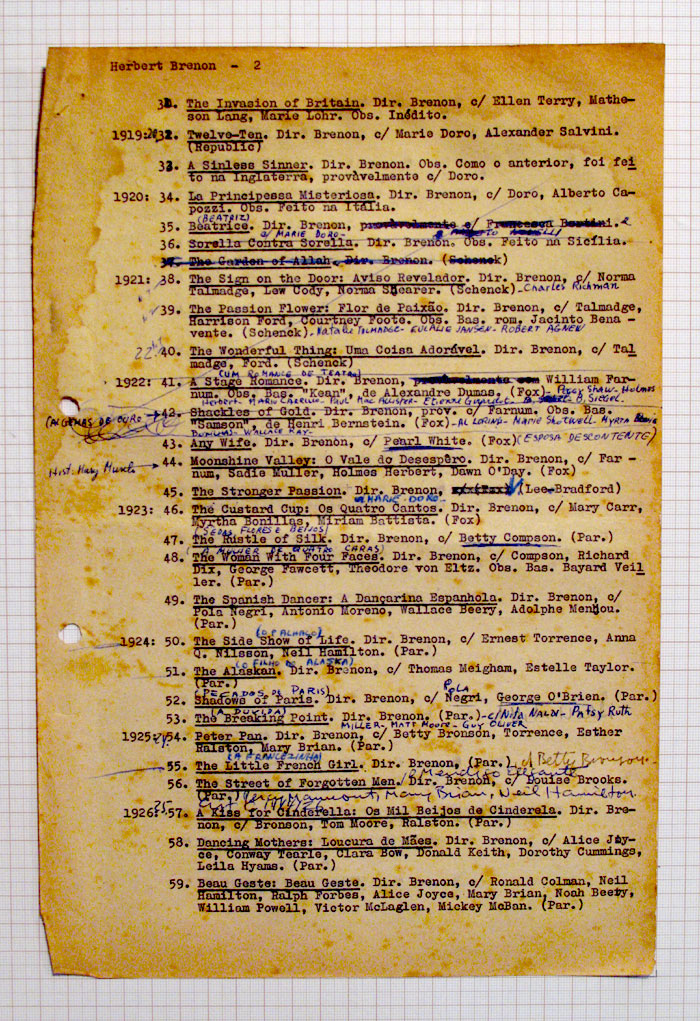 Herbert Brenon - 2
31. The Invasion of Britain. Dir. Brenon, c/ Ellen Terry, Mathe-
son Lang, Marie Lohr. Obs. Inédito.
1919: 32. Twelve-Ten. Dir. Brenon, c/ Marie Doro, Alexander Salvini.
(Republic)
33. A Sinless Sinner. Dir. Brenon. Obs. Como o anterior, foi fei
to na Inglaterra, provàvelmente c/ Doro.
1920: 34. La Principessa Misteriosa. Dir. Brenon, c/ Doro, Alberto Ca-
pozzi. Obs. Feito na Itália.
(BEATRIZ)
35. Beatrice. Dir. Brenon, provàvelmente c/ Francesca Bertini.
c/ MARIE DORO-
36. Sorella Contra Sorella. Dir. Brenon. Obs. Feito na Sicília.
37. The Garden of Allah. Dir. Brenon. (Schenck)
1921: 38. The Sign on the Door: Aviso Revelador. Dir. Brenon, c/ Norma
Talmadge, Lew Cody, Norma Shearer. (Schenck)-Charles Richman
39. The Passion Flower: Flor de Paixão. Dir. Brenon, c/ Talmadge,
Harrison Ford, Courtney Foote. Obs. Bas. rom. Jacinto Bena -
vente. (Schenck)-Natalie TALMADGE-EULALIE JANSEN-ROBERT AGNEW
22
40. The Wonderful Thing: Uma Coisa Adorável. Dir. Brenon, c/ Tal
madge, Ford. (Schenck)
(UM ROMANCE DE TEATRO)
1922: 41. A Stage Romance. Dir. Brenon, provàvelmente com William Far-
num. Obs. Bas. "Kean", de Alexandre Dumas. (Fox)-Peggy Shaw-Holmes
Herbert-MARIO CARRILLO-PAUL MAC ALLISTER-ETIENNE GIRARDOT-B. SIEGEL.
(ALGEMAS DE OURO) 42. Shackles of Gold. Dir. Brenon, prov. c/ Farnum. Obs. Bas.
"Samson", de Henri Bernstein. (Fox)-AL LORING-MARIE SHOTWELL-MYRTA
WALLACE RAY-
43. Any Wife. Dir. Brenon, c/ Pearl White. (Fox)(ESPOSA DESCONTENTE)
44. Moonshine Valley: O Vale do Desespêro. Dir. Brenon, c/ Far -
Hist. Mary Murcle
num, Sadie Muller, Holmes Herbert, Dawn O'Day. (Fox)
45. The Stronger Passion. Dir. Brenon, (Lee-Bradford)
MARIE DORO-
1923: 46. The Custard Cup: Os Quatro Cantos. Dir. Brenon, c/ Mary Carr,
Myrtha Bonillas, Miriam Battista. (Fox)
(SEDAS FLORES E BEIJOS)
47. The Rustle of Silk. Dir. Brenon, c/ Betty Compson. (Par.)
(A MULHER DE QUATRO CARAS)
48. The Woman With Four Faces. Dir. Brenon, c/ Compson, Richard
Dix, George Fawcett, Theodore von Eltz. Obs. Bas. Bayard Veil
ler. (Par.)
49. The Spanish Dancer: A Dançarina Espanhola. Dir. Brenon, c/
Pola Negri, Antonio Moreno, Wallace Beery, Adolphe Menjou.
(Par.)
(O PALHAÇO)
1924: 50. The Side Show of Life. Dir. Brenon, c/ Ernest Torrence, Anna
Q. Nilsson, Neil Hamilton. (Par.)
(O FILHO DO ALASKA)
51. The Alaskan. Dir. Brenon, c/ Thomas Meigham, Estelle Taylor.
(Par.)
(PECADOS DE PARIS) POLA
52. Shadows of Paris. Dir. Brenon, c/ Negri, George O'Brien. (Par.)
(A DUVIDA)
53. The Breaking Point. Dir. Brenon. (Par.)-c/Nita NALDI-PATSY RUTH
MILLER-MATT MOORE-GUY OLIVER
1925: 54. Peter Pan. Dir. Brenon, c/ Betty Bronson, Torrence, Esther
Ralston, Mary Brian. (Par.)
(A FRANCEZINHA)
55. The Little French Girl. Dir. Brenon, (Par.) c/Betty Bronson-
O Mendigo Elegante
56. The Street of Forgotten Men. Dir. Brenon, c/ Louise Brooks.
(Par.) Percy Marmont, Mary Brian, Neil Hamilton.
1926: 57. A Kiss for Cinderella: Os Mil Beijos de Cinderela. Dir. Bre-
non, c/ Bronson, Tom Moore, Ralston. (Par.)
58. Dancing Mothers: Loucura de Mães. Dir. Brenon, c/ Alice Joy-
ce, Conway Tearle, Clara Bow, Donald Keith, Dorothy Cummings,
Leila Hyams. (Par.)
59. Beau Geste: Beau Geste. Dir. Brenon, c/ Ronald Colman, Neil
Hamilton, Ralph Forbes, Alice Joyce, Mary Brian, Noah Beery,
William Powell, Victor McLaglen, Mickey McBan. (Par.)